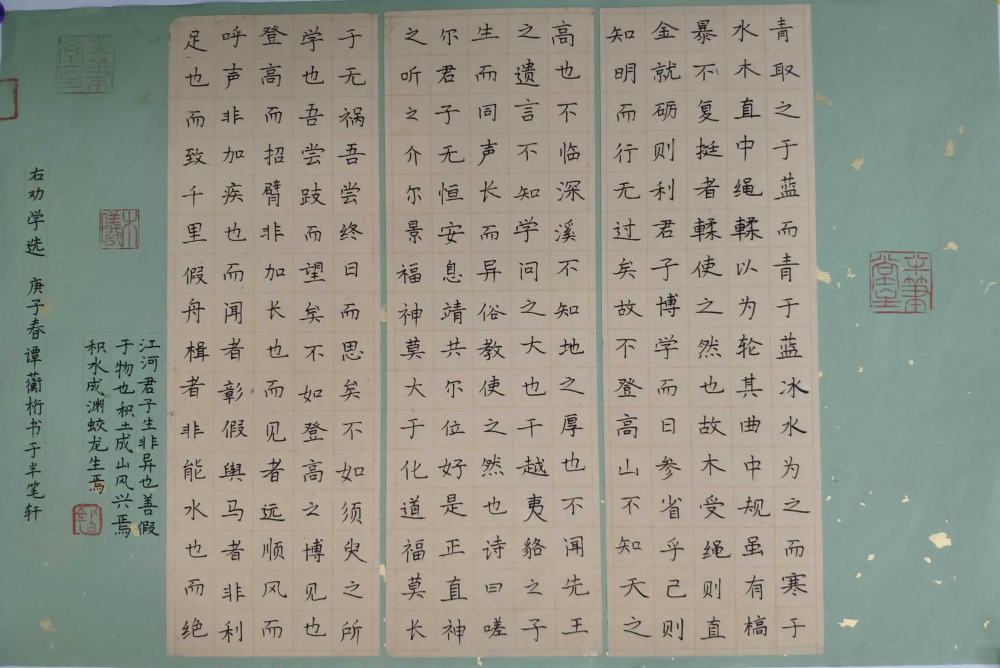 青取之于蓝而青于蓝冰水为之而寒于
水木直中绳輮以为轮其曲中规虽有槁
暴不复挺者輮使之然也故木受绳则直
金就砺则利君子博学而日参省乎己则
知明而行无过矣故不登高山不知天之
高也不临深溪不知地之厚也不闻先王
之遗言不知学问之大也干越夷貉之子
生而同声长而异俗教使之然也诗曰嗟
尔君子无恒安息靖共尔位好是正直神
之听之介尔景福神莫大于化道福莫长
于无祸吾尝终日而思矣不如须臾之所
学也吾尝跂而望矣不如登高之博见也
登高而招臂非加长也而见者远顺风而
呼声非加疾也而闻者彰假舆马者非利
足也而致千里假舟楫者非能水也而绝
江河君子生非异也善假
于物也积土成山风兴焉
积水成渊蛟龙生焉
右劝学选 庚子春谭蘅桁书于半笔轩